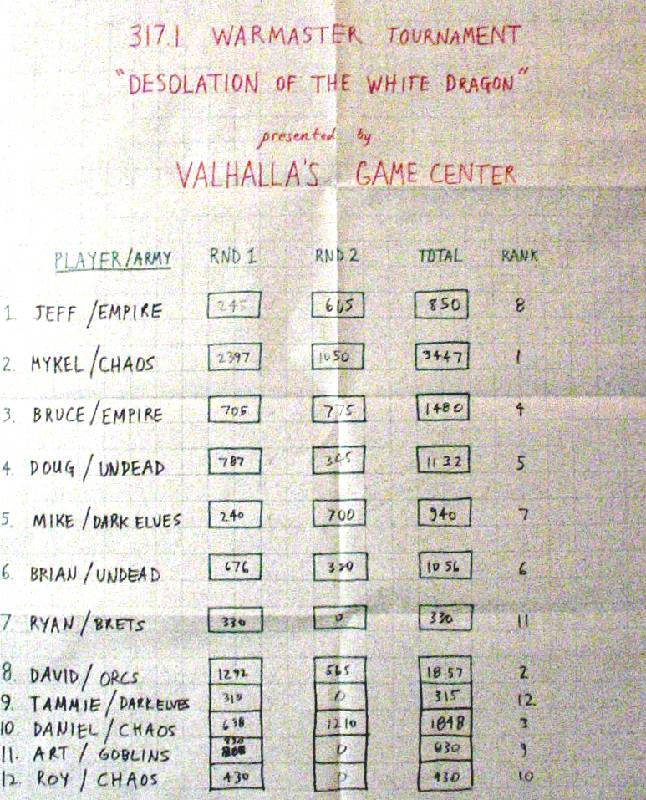 317.1 WARMASTER TOURNAMENT
"DESOLATION OF THE WHITE DRAGON"
presented by
VALHALLA'S GAME CENTER
PLAYER/ARMY RND 1 RND 2 TOTAL RANK
1. JEFF / EMPIRE 245 605 850 8
2. MYKEL / CHAOS 2397 1050 3447 1
3. BRUCE / EMPIRE 705 775 1480 4
4. DOUG / UNDEAD 787 345 1132 5
5. MIKE / DARK ELVES 240 700 940 7
6. BRIAN / UNDEAD 676 380 1056 6
7 RYAN / BRETS 330 0 330 11
8. DAVID / ORCS 1292 565 1857 2
9. TAMMIE / DARK ELVES 315 0 315 12
10. DANIEL / CHAOS 638 1210 1848 3
11. ART / GOBLINS 0 9
12. ROY / CHAOS 430 0 430 10